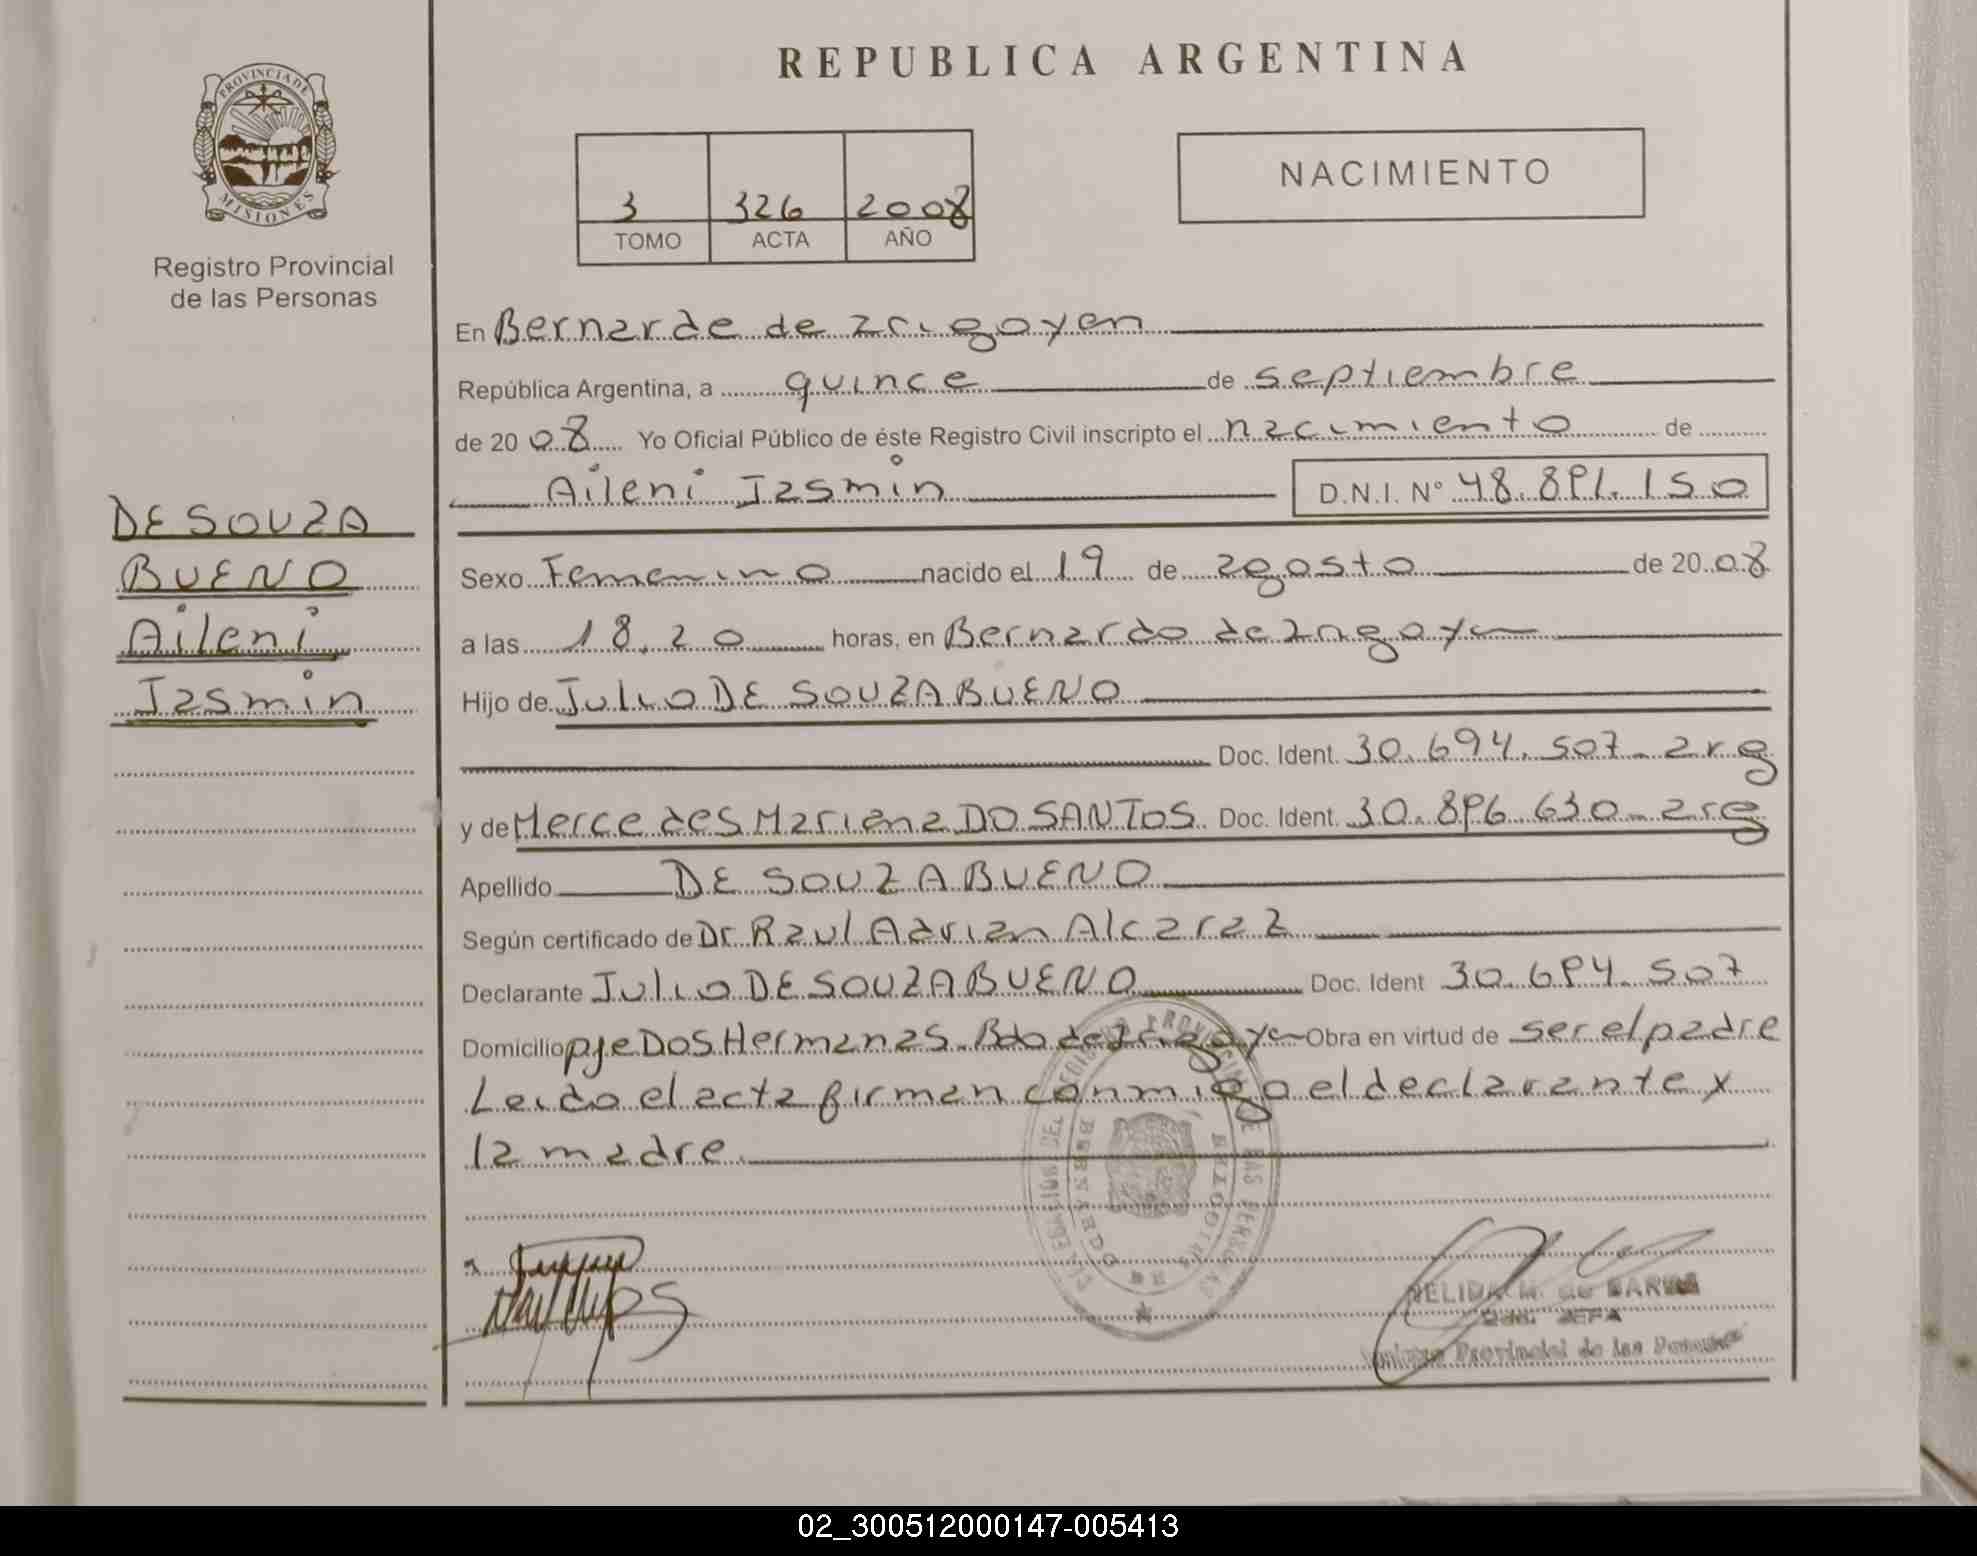 REPUBLICA ARGENTINA
PROVINCIA DE
MISIONES
Registro Provincial
de las Personas
3 326 2008
TOMO ACTA AÑO
NACIMIENTO
DE SOUZA
BUENO
Aileni
Iasmin
En Bernardo de Irigoyen
República Argentina, a quince de septiembre
de 20 08 Yo Oficial Público de éste Registro Civil inscripto el nacimiento de
Aileni Iasmin D.N.I. N° 48.891.150
Sexo Femenino nacido el 19 de agosto de 20 08
a las 18.20 horas, en Bernardo de Irigoyen
Hijo de Julio DE SOUZA BUENO
Doc. Ident. 30.694.507 - arg
y de Mercedes Mariana DO SANTOS Doc. Ident. 30.896.630 - arg
Apellido DE SOUZA BUENO
Según certificado de Dr Raul Adrian Alcaraz
Declarante Julio DE SOUZA BUENO Doc. Ident 30.694.507
Domicilio pje Dos Hermanas Bdo de Irigoyen Obra en virtud de ser el padre
Leido el acta firman conmigo el declarante y
la madre.
NELIDA de
JEFA
Provincial de las Personas
02_300512000147-005413